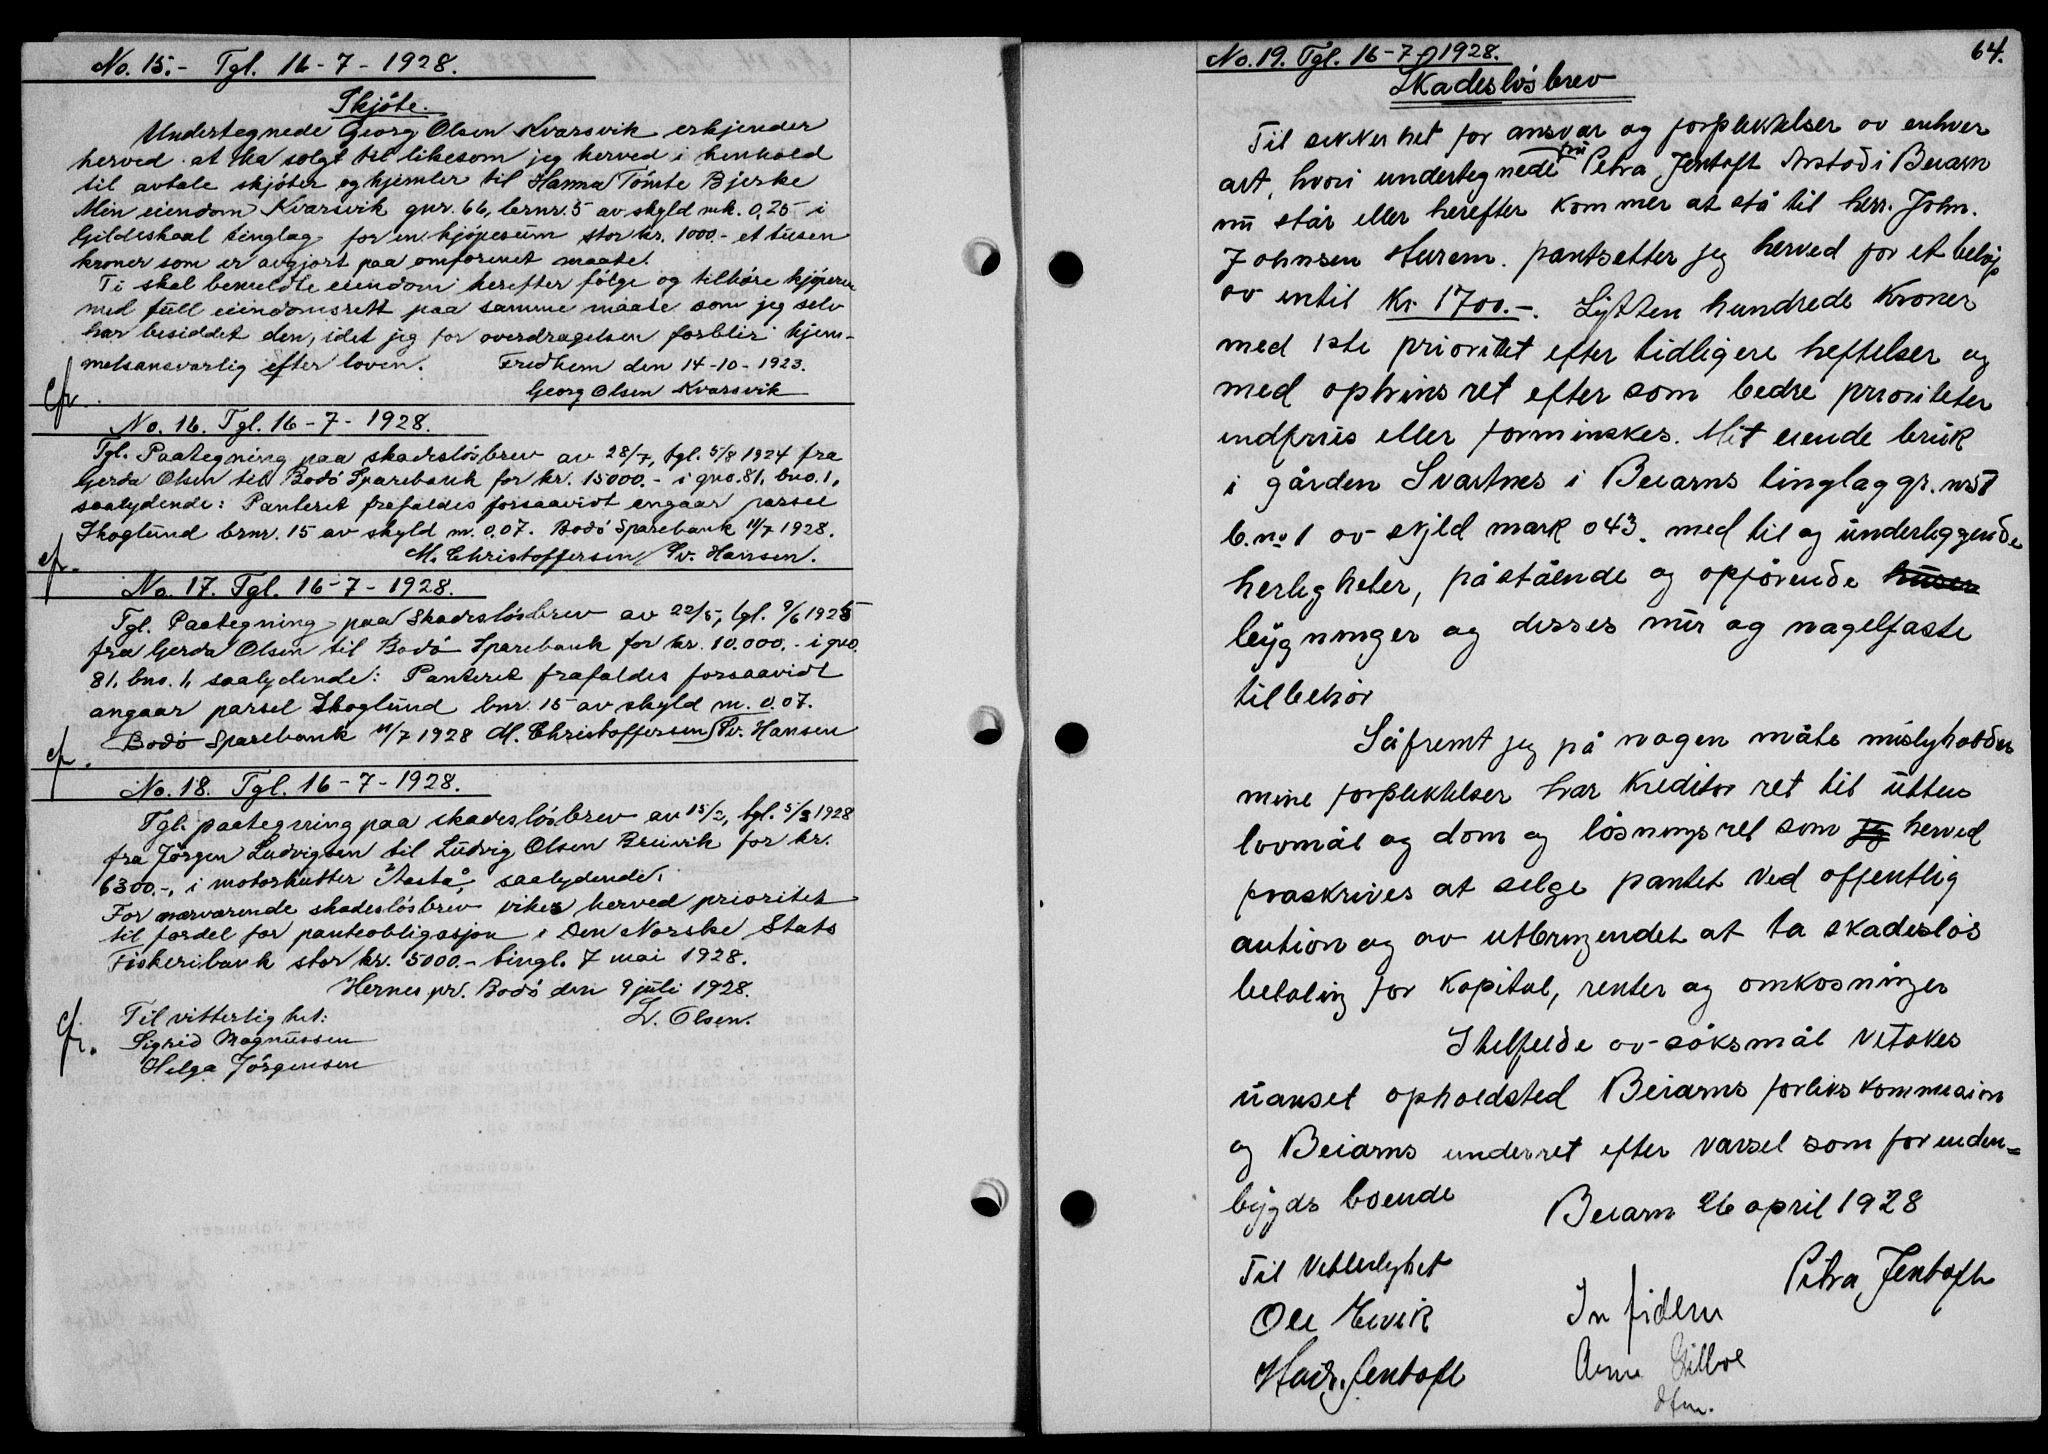 No. 15.- Tgl. 16-7-1928.
Skjöte.
Undertegnede Georg Olsen Kvarsvik erkjender
herved at ha solgt til likesom jeg herved i henhold
til avtale skjöter og hjemler til Hanna Tömte Bjerke
Min eiendom Kvarsvik gnr. 66, brnr. 5 av skyld mk. 0,25 i
Gildeskaal tinglag for en kjöpesum stor kr. 1000.- et tusen
kroner som er avgjort paa omforenet maate.
Ti skal bemeldte eiendom herefter fölge og tilhöre kjöperen
med full eiendomsrett paa samme maate som jeg selv
har besiddet den, idet jeg for overdragelsen forblir hjem-
melsansvarlig efter loven. Fredhem den 14-10-1923.
Georg Olsen Kvarsvik
cfr.
No. 16. Tgl. 16-7-1928.
Tgl. Paategning paa skadeslösbrev av 28/7, tgl. 5/8 1924 fra
Gerda Olsen til Bodö Sparebank for kr. 15000.- i gno. 81, bno. 1,
saalydende: Panteret frafaldes forsaavidt angaar parsel
Skoglund brnr. 15 av skyld m. 0.07. Bodö Sparebank 11/7 1928.
M. Christoffersen / Sv. Hansen.
cf.
No. 17. Tgl. 16-7-1928.
Tgl. Paategning paa Skadeslösbrev av 22/5, tgl. 9/6 1925
fra Gerda Olsen til Bodö Sparebank for kr. 10.000.- i gno.
81, bno. 1, saalydende: Panteret frafaldes forsaavidt
angaar parsel Skoglund bnr. 15 av skyld m. 0.07.
Bodö Sparebank 11/7 1928 M. Christoffersen / Sv. Hansen
cf.
No. 18. Tgl. 16-7-1928.
Tgl. paategning paa skadeslösbrev av 15/2, tgl. 5/3 1928
fra Jörgen Ludvigsen til Ludvig Olsen Breivik for kr.
6300.-, i motorkutter "Aasta", saalydende:
For nærværende skadeslösbrev vikes herved prioritet
til fordel for panteobligasjon i Den Norske Stats
Fiskeribank stor kr. 5000.- tingl. 7 mai 1928.
Hernes pr. Bodö den 9 juli 1928.
Til vitterlighet: L. Olsen.
cfr. Sigrid Magnussen
Helga Jörgensen
64.
No. 19. Tgl. 16-7-1928.
Skadeslösbrev
Til sikkerhet for ansvar og forpliktelser av enhver
art, hvori undertegnede frü Petra Jentoft Arstad i Beiarn
nü står eller herefter kommer at stå til herr. John.
Johnsen Sturem. pantsetter jeg herved for et belöp
av intil Kr 1700.-. Sytten hundrede Kroner
med 1ste prioritet efter tidligere heftelser og
med oprinsret efter som bedre prioriteter
indfries eller forminskes. Mit eiende brük
i gården Svartnes i Beiarns tinglag gr. no 57
b.no 1 av skjld mark 0 43. med til og underliggende
herligheter, påstående og opförende hüser
bygninger og disses mür og nagelfaste
tilbehör
Såfremt jeg på nogen måte misligholder
mine forpliktelser har Kreditor ret til uten
lovmål og dom og lösningsret som jeg herved
fraskrives at selge pantet ved offentlig
aution og av utbringendet at ta skadeslös
betaling for Kapital, renter og omkosninger
I tilfelde av söksmål vetakes
uanset opholdsted Beiarns forlikskommision
og Beiarns underret efter varsel som for inden-
bygds boende Beiarn 26 april 1928
Til Vetterlighet Petra Jentoft
Ole Eivik In fidem
Hadr. Jentoft Arne